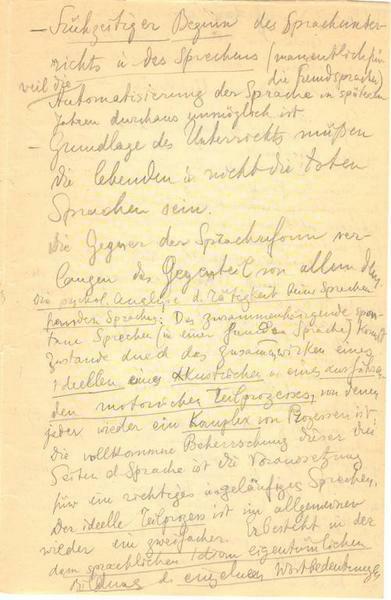 — Frühzeitiger Beginn des Sprachunter-
richts u des Sprechens (namentlich für
die Fremdsprache)
weil die
Automatisierung der Sprache in späteren
Jahren durchaus unmöglich ist.
— Grundlage des Unterrichts müßen
die lebenden u nicht die toten
Sprachen sein.
Die Gegner der Sprachreform ver-
langen das Gegenteil von allem dem
Die psychol. Analyse d. Tätigkeit beim Sprechen
fremden Sprache: Das zusammenhängende spon-
tane Sprechen (in einer fremden Sprache) kommt
zustande durch das zusammwirken eines
ideellen eines akustischen u eines
den motorischen Teilprozesses, von denen
jeder wieder ein Komplex von Prozessen ist:
die vollkommene Beherrschung dieser drei
Seiten d Sprache ist die Voraussetzung
für ein richtiges u geläufiges Sprechen.
Der ideelle Teilprozess ist im allgemeinen
wieder ein zweifacher. Er besteht in der
dem sprachlichen Idiom eigentümlichen
Bildung d. einzelnen Wortbedeutungen